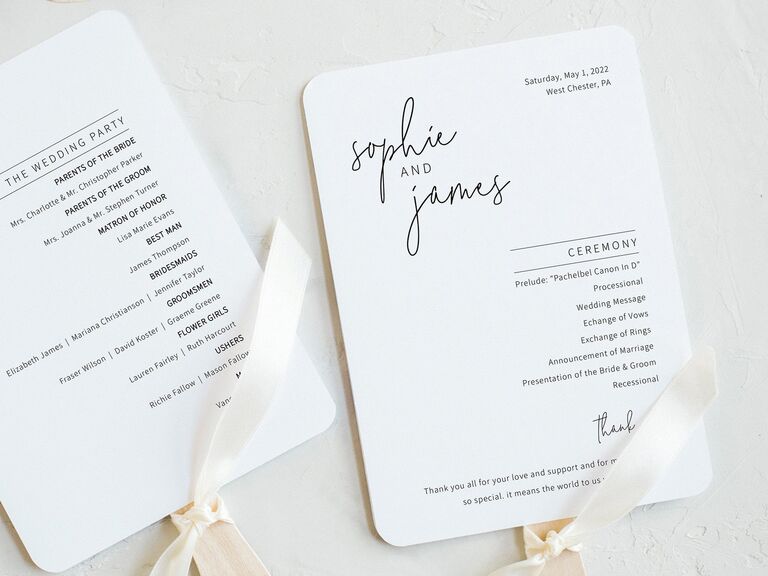 THE WEDDING PARTY
PARENTS OF THE BRIDE
Mrs. Charlotte & Mr. Christopher Parker
PARENTS OF THE GROOM
Mrs. Joanna & Mr. Stephen Turner
MATRON OF HONOR
Lisa Marie Evans
BEST MAN
James Thompson
BRIDESMAIDS
Elizabeth James | Mariana Christianson | Jennifer Taylor
GROOMSMEN
Fraser Wilson | David Koster | Graeme Greene
FLOWER GIRLS
Lauren Fairley | Ruth Harcourt
USHERS
Richie Fallow | Mason Fallow
Saturday, May 1, 2022
West Chester, PA
sophie
AND
james
CEREMONY
Prelude: "Pachelbel Canon In D"
Processional
Wedding Message
Echange of Vows
Exchange of Rings
Announcement of Marriage
Presentation of the Bride & Groom
Recessional
thank
Thank you all for your love and support and for
so special. it means the world to us